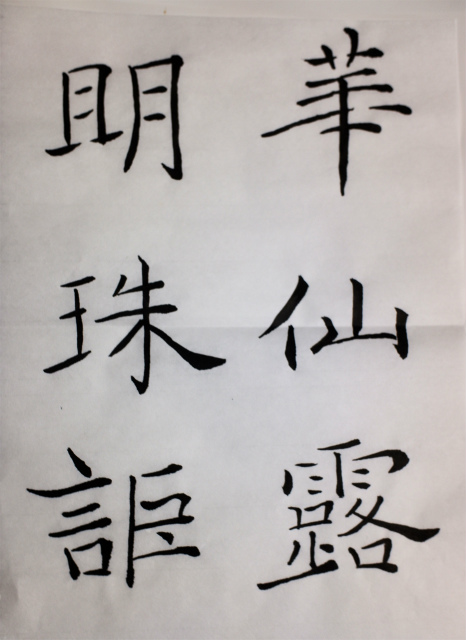 華仙露
明珠詎